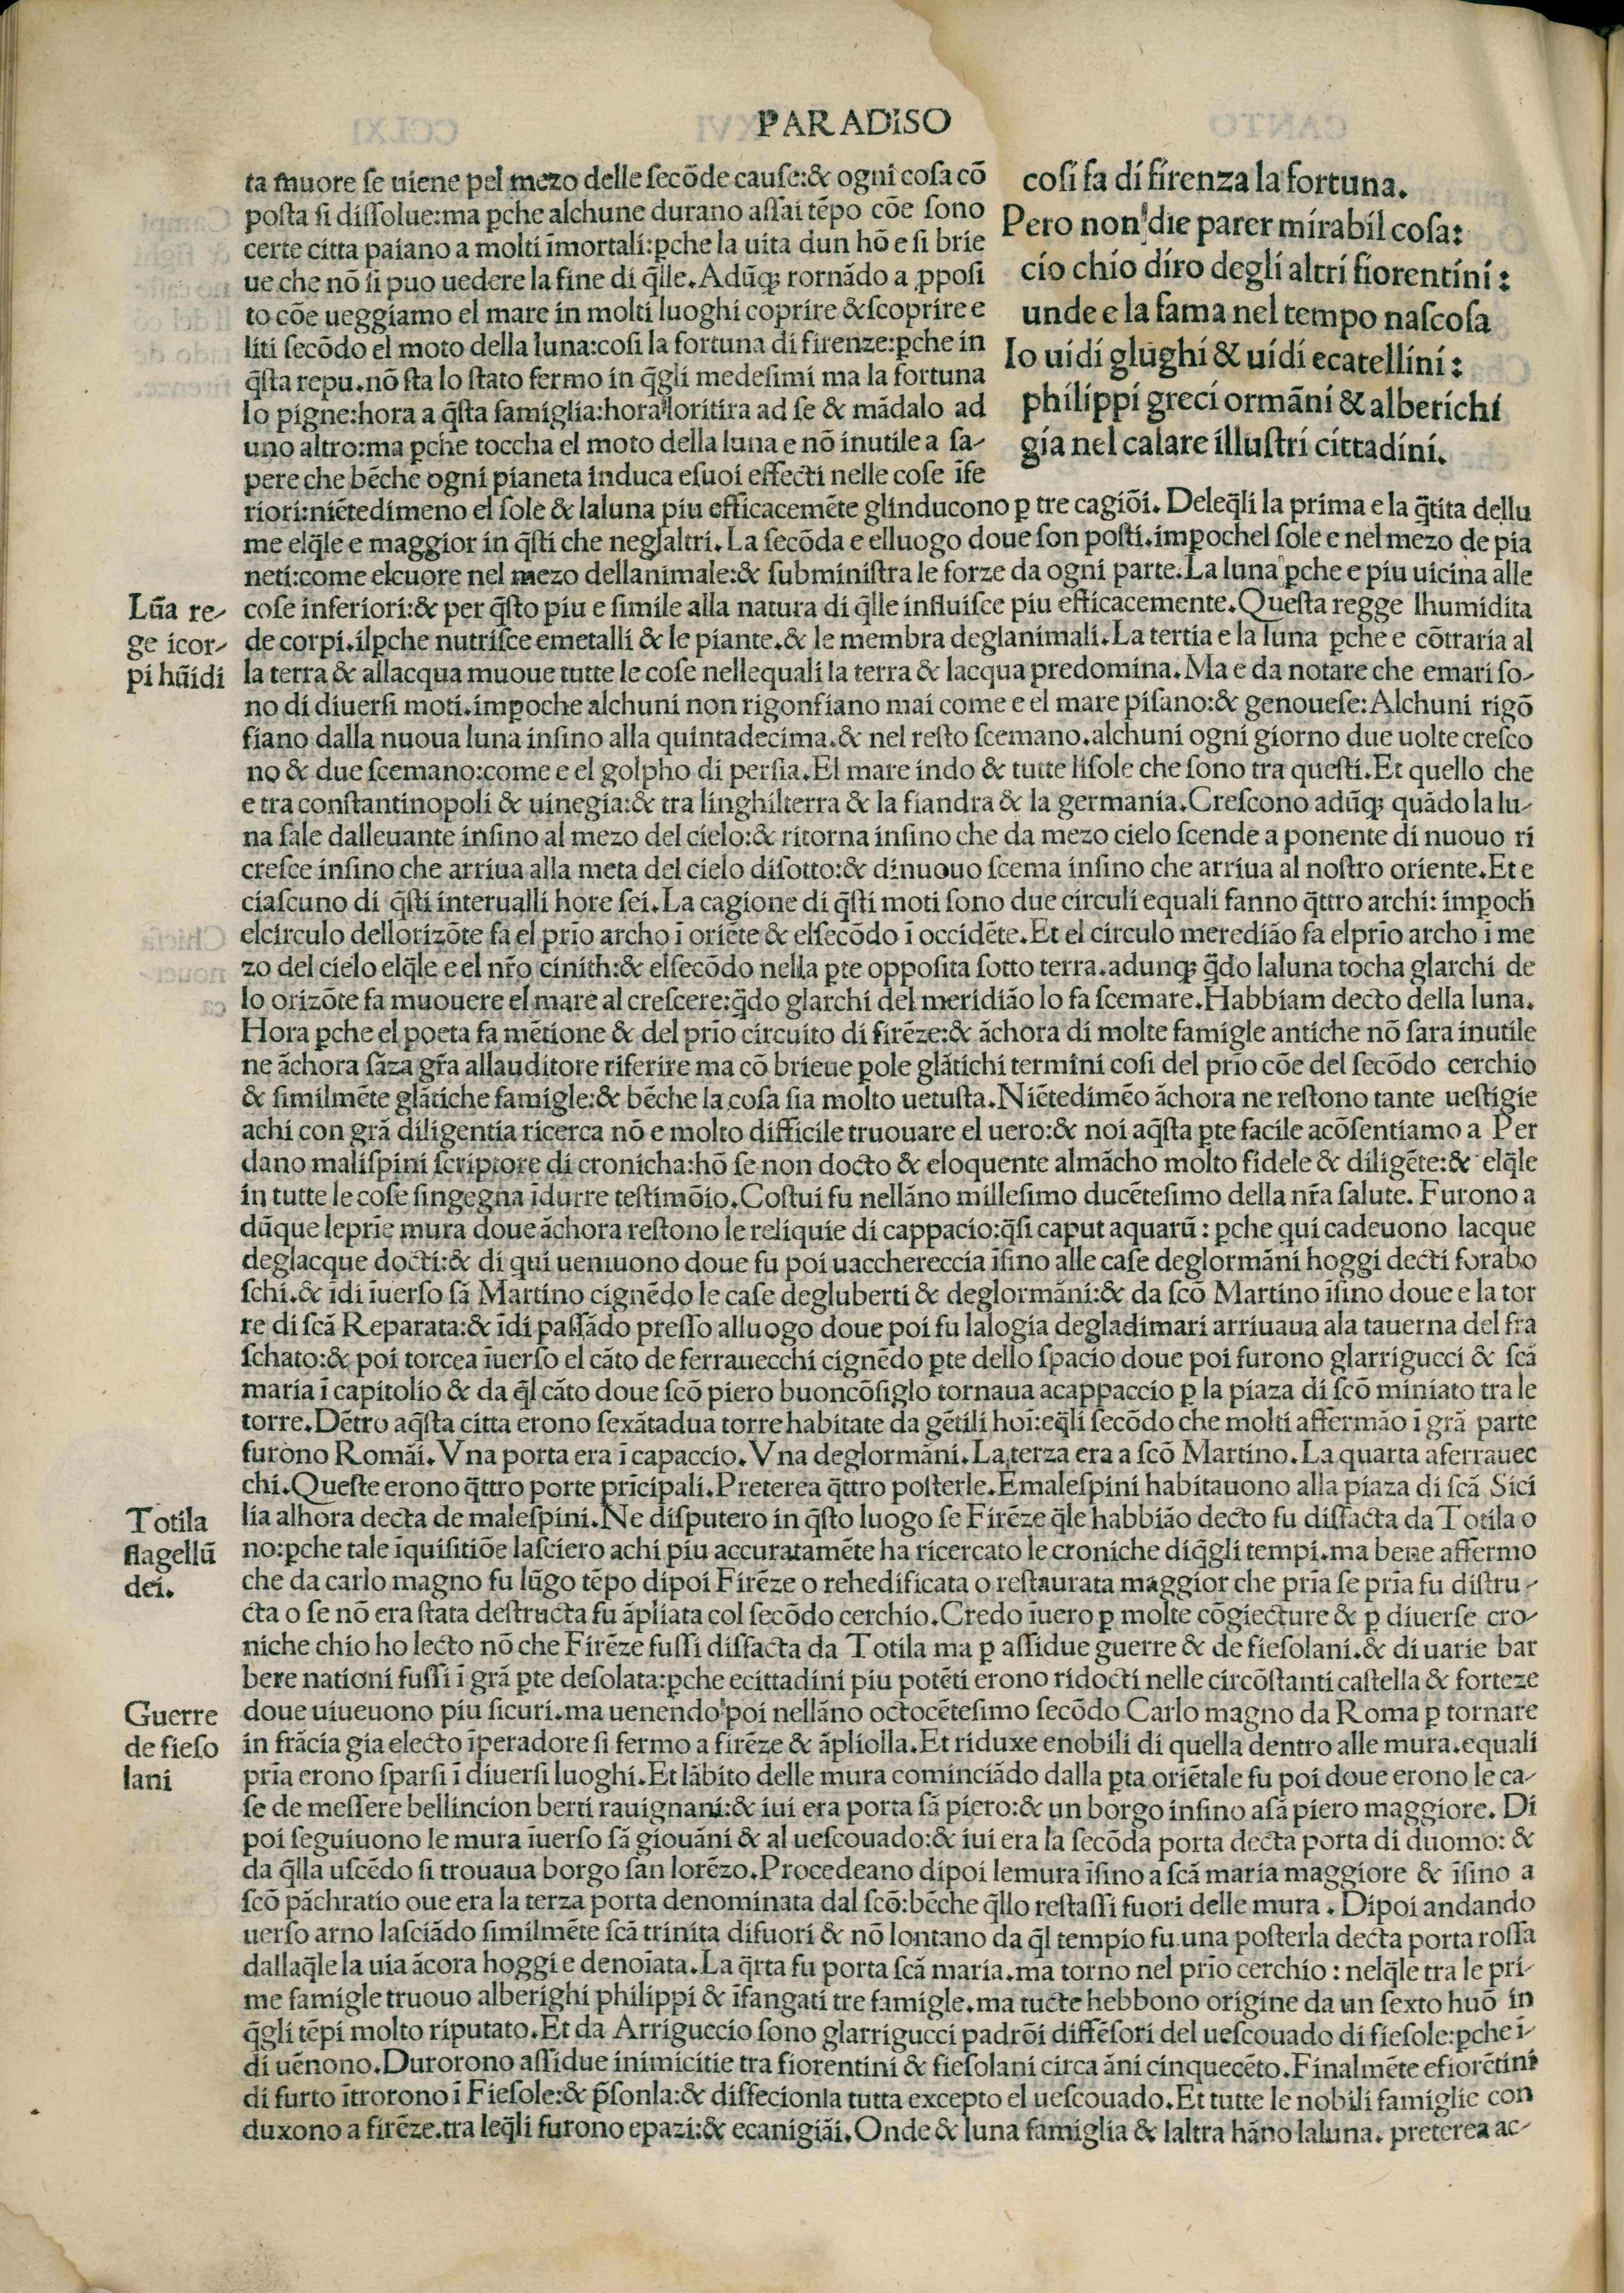 PARADiSO
ta muore se uiene pel mezo delle secōde cause:& ogni cosa cō
posta si dissolue:ma ꝑche alchune durano assai tēpo cōe sono
certe citta paiano a molti īmortali:ꝑche la uita dun hō e si brie
ue che nō si puo uedere la fine di q̄lle.Adūqꝫ rornādo a ꝓposi
to cōe ueggiamo el mare in molti luoghi coprire &scoprire e
liti secōdo el moto della luna:cosi la fortuna di firenze:ꝑche in
q̄sta repu.nō sta lo stato fermo in q̄gli medesimi ma la fortuna
lo pigne:hora a q̄sta famiglia:hora loritira ad se & mādalo ad
uno altro:ma ꝑche toccha el moto della luna e nō inutile a sa-
pere che bēche ogni pianeta induca esuoi effecti nelle cose īfe
cosi fa di firenza la fortuna.
Pero non die parer mirabil cosa:
cio chio diro degli altri fiorentini:
unde e la fama nel tempo nascosa
Io uidi glughi & uidi ecatellini:
philippi greci ormāni & alberichi
gia nel calare illustri cittadini.
riori:niētedimeno el sole & laluna piu efficacemēte glinducono ꝑ tre cagiōi. Deleq̄li la prima e la q̄tita dellu
me elq̄le e maggior in q̄sti che neglaltri.La secōda e elluogo doue son posti.impochel sole e nel mezo de pia
neti:come elcuore nel mezo dellanimale:& subministra le forze da ogni parte.La luna ꝑche e piu uicina alle
cose inferiori:& per q̄sto piu e simile alla natura di q̄lle influisce piu efficacemente.Questa regge lhumidita
de corpi.ilꝑche nutrisce emetalli & le piante.& le membra deglanimali.La tertia e la luna ꝑche e cōtraria al
la terra & allacqua muoue tutte le cose nellequali la terra & lacqua predomina.Ma e da notare che emari so-
no di diuersi moti.imꝑoche alchuni non rigonfiano mai come e el mare pisano:& genouese:Alchuni rigō
fiano dalla nuoua luna insino alla quintadecima.& nel resto scemano.alchuni ogni giorno due uolte cresco
no & due scemano:come e el golpho di persia.El mare indo & tutte lisole che sono tra questi.Et quello che
e tra constantinopoli & uinegia:& tra linghilterra & la fiandra & la germania.Crescono adūqꝫ quādo la lu-
na sale dalleuante insino al mezo del cielo:& ritorna insino che da mezo cielo scende a ponente di nuouo ri
cresce insino che arriua alla meta del cielo disotto:& dinuouo scema insino che arriua al nostro oriente.Et e
ciascuno di q̄sti interualli hore sei.La cagione di q̄sti moti sono due circuli equali fanno q̄ttro archi: imꝑoch
elcirculo dellorizōte fa el prīo archo ī oriēte & elsecōdo ī occidēte.Et el circulo merediāo fa elprīo archo ī me
zo del cielo elq̄le e el nr̄o cinith:& elsecōdo nella ꝑte opposita sotto terra.adunqꝫ q̄do laluna tocha glarchi de
lo orizōte fa muouere el mare al crescere:q̄do glarchi del meridiāo lo fa scemare.Habbiam decto della luna.
Hora ꝑche el poeta fa mētione & del prīo circuito di firēze:& āchora di molte famigle antiche nō sara inutile
ne āchora sāza gr̄a allauditore riferire ma cō brieue ꝑole glātichi termini cosi del prīo cōe del secōdo cerchio
& similmēte glātiche famigle:& bēche la cosa sia molto uetusta.Niētedimēo āchora ne restono tante uestigie
achi con grā diligentia ricerca nō e molto difficile truouare el uero:& noi aq̄sta ꝑte facile acōsentiamo a Per
dano malispini scriptore di cronicha:hō se non docto & eloquente almācho molto fidele & diligēte:& elq̄le
in tutte le cose singegna īdurre testimōio.Costui fu nellāno millesimo ducētesimo della nr̄a salute. Furono a
dūque leprīe mura doue āchora restono le reliquie di cappacio:q̄si caput aquarū: ꝑche qui cadeuono lacque
deglacque docti:& di qui ueniuono doue fu poi uacchereccia īsino alle case deglormāni hoggi decti forabo
schi.& īdi īuerso sā Martino cignēdo le case degluberti & deglormāni:& da scō Martino īsino doue e la tor
re di scā Reparata:& īdi passādo presso alluogo doue poi fu lalogia degladimari arriuaua ala tauerna del fra
schato:& poi torcea īuerso el cāto de ferrauecchi cignēdo ꝑte dello spacio doue poi furono glarrigucci & scā
maria ī capitolio & da q̄l cāto doue scō piero buoncōsiglo tornaua acappaccio ꝑ la piaza di scō miniato tra le
torre.Dētro aq̄sta citta erono sexātadua torre habitate da gētili hoī:eq̄li secōdo che molti affermāo ī grā parte
furono Romāi.Vna porta era ī capaccio.Vna deglormāni.La terza era a scō Martino.La quarta aferrauec
chi.Queste erono q̄ttro porte prīcipali.Preterea q̄ttro posterle.Emalespini habitauono alla piaza di scā Sici
lia alhora decta de malespini.Ne disputero in q̄sto luogo se Firēze q̄le habbiāo decto fu disfacta da Totila o
no:ꝑche tale īquisitiōe lasciero achi piu accuratamēte ha ricercato le croniche diq̄gli tempi.ma bene affermo
che da carlo magno fu lūgo tēpo dipoi Firēze o rehedificata o restaurata maggior che prīa se prīa fu distru-
cta o se nō era stata destructa fu āpliata col secōdo cerchio.Credo īuero ꝑ molte cōgiecture & ꝑ diuerse cro-
niche chio ho lecto nō che Firēze fussi disfacta da Totila ma ꝑ assidue guerre & de fiesolani.& di uarie bar
bere nationi fussi ī grā ꝑte desolata:ꝑche ecittadini piu potēti erono ridocti nelle circōstanti castella & forteze
doue uiueuono piu sicuri.ma uenendo poi nellāno octocētesimo secōdo Carlo magno da Roma ꝑ tornare
in frācia gia electo īperadore si fermo a firēze & āpliolla.Et riduxe enobili di quella dentro alle mura.equali
prīa erono sparsi ī diuersi luoghi.Et lābito delle mura cominciādo dalla ꝑta oriētale fu poi doue erono le ca-
se de messere bellincion berti rauignani:& iui era porta sā piero:& un borgo insino asā piero maggiore. Di
poi seguiuono le mura īuerso sā giouāni & al uescouado:& iui era la secōda porta decta porta di duomo: &
da q̄lla uscēdo si trouaua borgo san lorēzo.Procedeano dipoi lemura īsino a scā maria maggiore & īsino a
scō pāchratio oue era la terza porta denominata dal scō:bēche q̄llo restassi fuori delle mura. Dipoi andando
uerso arno lasciādo similmēte scā trinita difuori & nō lontano da q̄l tempio fu una posterla decta porta rossa
dallaq̄le la uia ācora hoggi e denoīata.La q̄rta fu porta scā maria.ma torno nel prīo cerchio: nelq̄le tra le pri-
me famigle truouo alberighi philippi & īfangati tre famigle.ma tucte hebbono origine da un sexto huō in
q̄gli tēpi molto riputato.Et da Arriguccio sono glarrigucci padrōi diffēsori del uescouado di fiesole:ꝑche ī-
di uēnono.Durorono assidue inimicitie tra fiorentini & fiesolani circa āni cinquecēto.Finalmēte efiorētini
di furto ītrorono ī Fiesole:& p̄sonla:& disfecionla tutta excepto el uescouado.Et tutte le nobili famiglie con
duxono a firēze.tra leq̄li furono epazi:& ecanigiāi.Onde & luna famiglia & laltra hāno laluna. preterea ac-
Lūa re-
ge icor-
pi hūidi
Totila
flagellū
dei.
Guerre
de fieso
lani